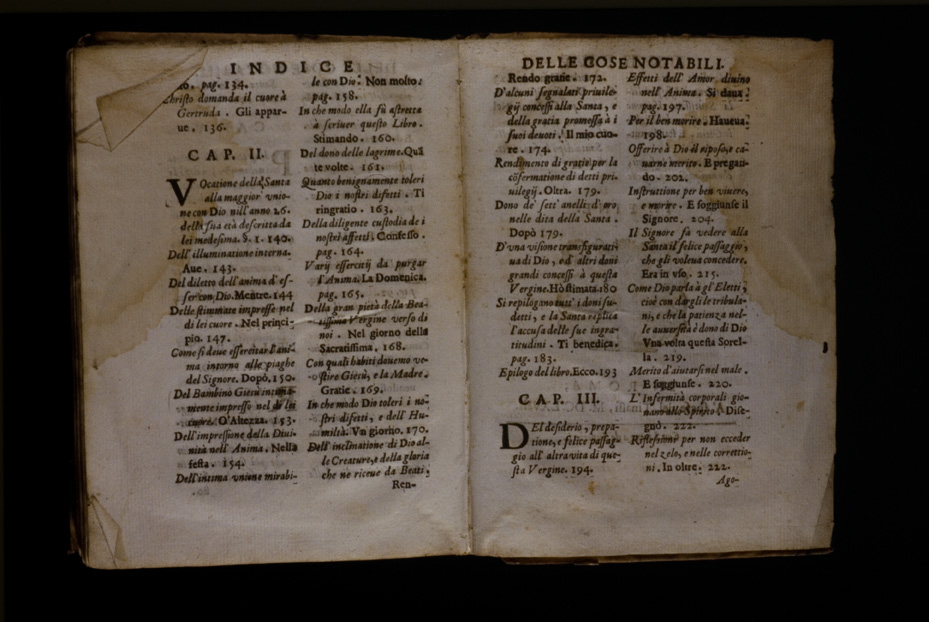 INDICE
to. pag. 134.
Christo domanda il cuore à
Gertruda. Gli appar-
ue. 136.
CAP. II.
VOcatione della Santa
alla maggior vnio-
ne con Dio nill'anno 26.
della sua età descritta da
lei medesima. §. 1. 140.
Dell'illuminatione interna.
Aue. 143.
Del diletto dell'anima d'es-
ser con Dio. Mentre. 144
Delle stimmate impresse nel
di lei cuore. Nel princi-
pio. 147.
Come si deue essercitar l'ani-
ma intorno alle piaghe
del Signore. Dopò. 150.
Del Bambino Giesù intima-
mente impresso nel di lei
cuore. O'Altezza. 153.
Dell'impressione della Diui-
nità nell'Anima. Nella
festa. 154.
Dell'intima vnione mirabi-
le con Dio. Non molto.
pag. 158.
In che modo ella fù astretta
à scriuer questo Libro.
Stimando. 160.
Del dono delle lagrime. Quã
te volte. 161.
Quanto benignamente toleri
Dio i nostri difetti. Ti
ringratio. 163.
Della diligente custodia de i
nostri affetti. Confesso.
pag. 164.
Varij essercitij da purgar
l'Anima. La Domenica.
pag. 165.
Della gran pietà della Bea-
tissima Vergine verso di
noi. Nel giorno della
Sacratissima. 168.
Con quali habiti douemo ve-
stire Giesù, e la Madre.
Gratie. 169.
In che modo Dio toleri i no-
stri difetti, e dell'Hu-
miltà. Vn giorno. 170.
Dell'inclinatione di Dio al-
le Creature, e della gloria
che ne riceue da Beati.
Ren-
DELLE COSE NOTABILI.
Rendo gratie. 172.
D'alcuni segnalati priuile-
gij concessi alla Santa, e
della gratia promessa à i
suoi deuoti. Il mio cuo-
re. 174.
Rendimento di gratie per la
cõfermatione di detti pri-
uilegij. Oltra. 179.
Dono de' sett'anelli d'oro
nelle dita della Santa.
Dopò 179.
D'vna visione transfigurati
ua di Dio, ed'altri doni
grandi concessi à questa
Vergine. Hò stimata. 180
Si repilogano tutt'i doni su-
detti, e la Santa replica
l'accusa delle sue ingra-
titudini. Ti benedica.
pag. 183.
Epilogo del libro. Ecco. 193
CAP. III.
DEl desiderio, prepa-
tione, e felice passag-
gio all'altra vita di que-
sta Vergine. 194.
Effetti dell'Amor diuino
nell'Anima. Si daua.
pag. 197.
Per il ben morire. Haueua.
198.
Offerire à Dio il riposo, e ca-
uarne merito. E pregan-
do. 202.
Instruttione per ben viuere,
e morire. E soggiunse il
Signore. 204.
Il Signore fà vedere alla
Santa il felice passaggio,
che gli voleua concedere.
Era in vso. 215.
Come Dio parla à gl'Eletti,
cioè con dargli le tribula-
ni, e che la patienza nel-
le auuersità è dono di Dio
Vna volta questa Sorel-
la. 219.
Merito d'aiutarsi nel male.
E soggiunse. 220.
L'Infermità corporali gio-
uano allo Spirito. Dise-
gnò. 222.
Riflessione per non ecceder
nel zelo, e nelle correttio-
ni. In oltre. 222.
Ago-